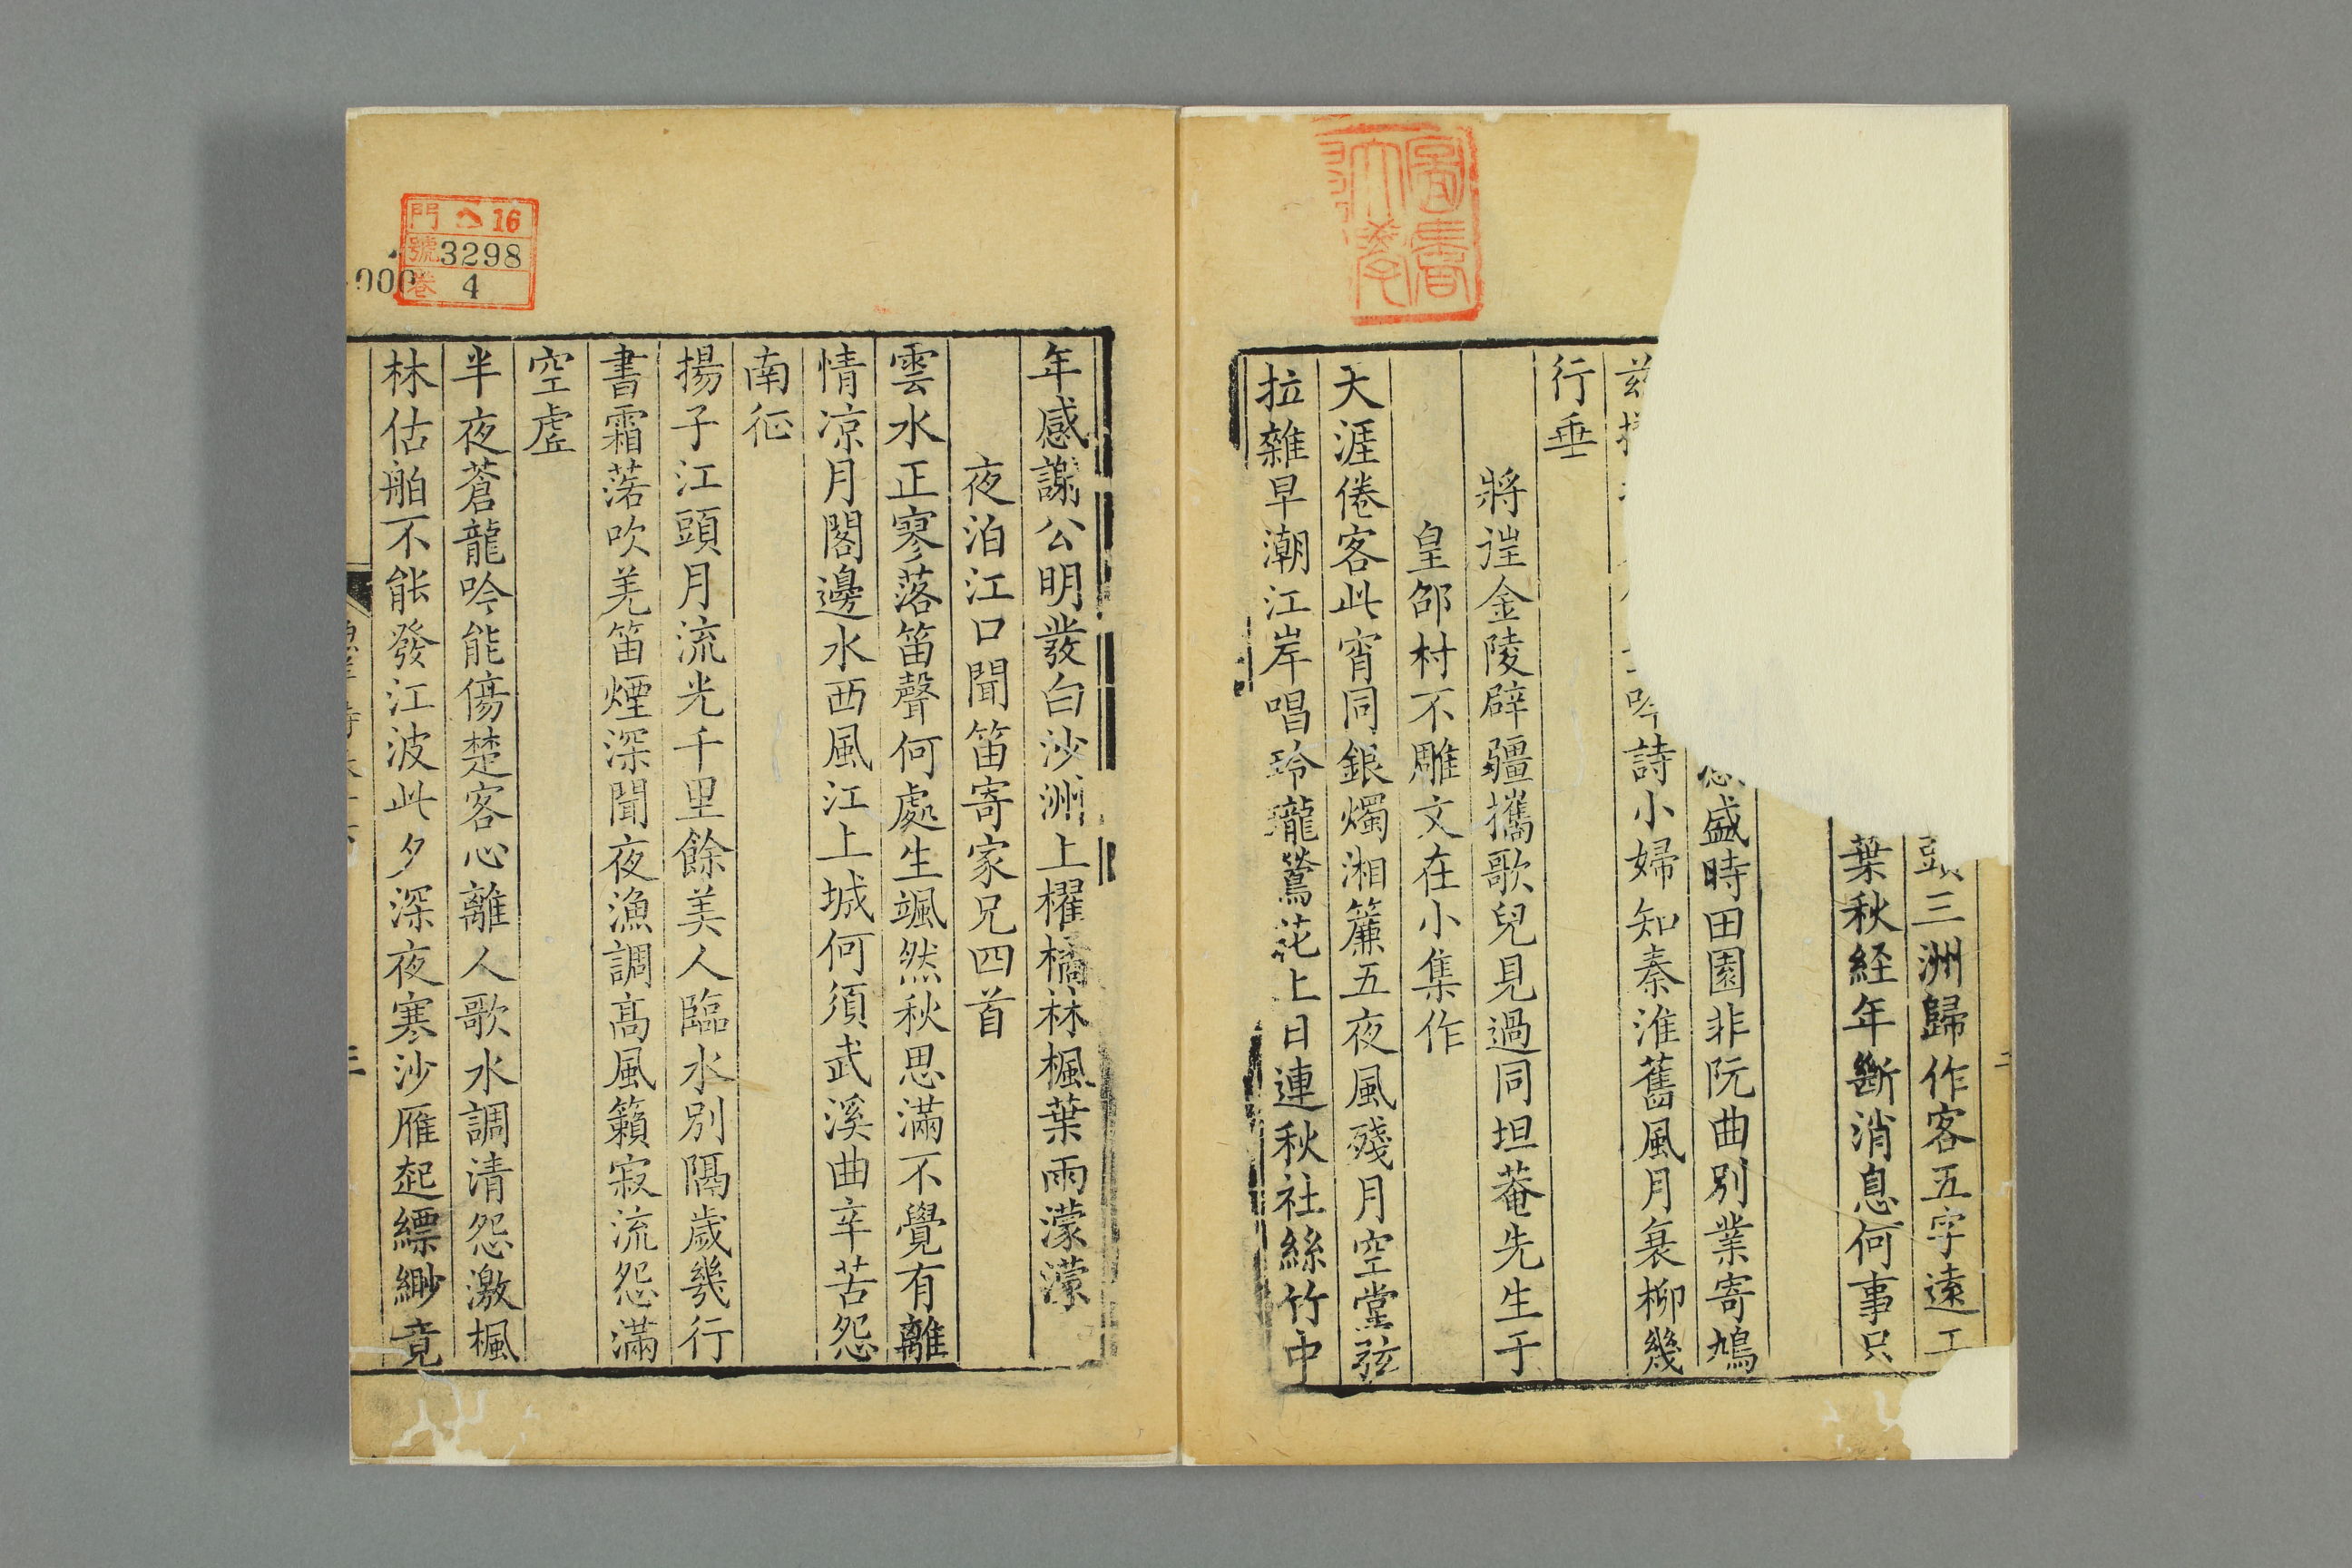 三洲歸作客五字遠
葉秋経年斷消息何事只
盛時田園非阮曲別業寄鳩
兹 吟詩小婦知秦淮舊風月衰柳幾
行垂
將谨金陵辟疆攜歌兒見過同坦菴先生于
皇邰村不雕文在小集作
天涯倦客此宵同銀燭湘簾五夜風殘月空堂弦
拉雜早潮江岸唱玲瓏鶯花上日連秋社絲竹中
年感謝公明發白沙洲上櫂橘林楓葉雨濛濛
夜泊江口聞笛寄家兄四首
雲水正寥落笛聲何處生颯然秋思滿不覺有離
情凉月閣邊水西風江上城何須武溪曲辛苦怨
南征
揚子江頭月流光千里餘美人臨水別隔歲幾行
書霜落吹羌笛煙深聞夜漁調高風籟寂流怨滿
空虛
半夜蒼龍吟能傷楚客心離人歌水調清怨激楓
林估舶不能發江波此夕深夜寒沙雁起縹緲竟
門 へ 16
號 3298
卷 4